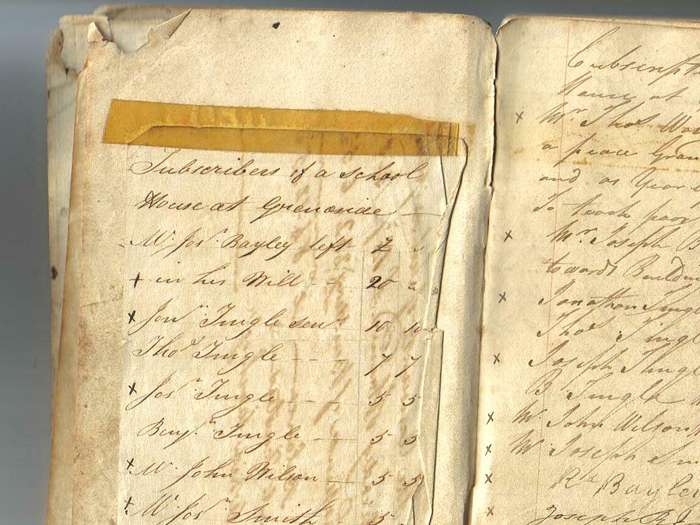 Subscribers of a School
House at Grenoside
Mr Josh Bayley left £
+ in his Will 20
x Jonn Tingle senr 10 10
Thos Tingle 7 7
x Josh Tingle 5 5
Benjn Tingle 5 5
x Mr John Wilson 5 5
x Mr Josh Smith 5
Subscript
House at
x Mr Thos
a peace
and as
To teach poor
x Mr Joseph
towards Building
x Jonathan Ting
Thos Tingl
x Joseph Tingl
B Tingle
x Mr John Wilson
x Mr Joseph Sm
x Rd Bayle
x Joseph